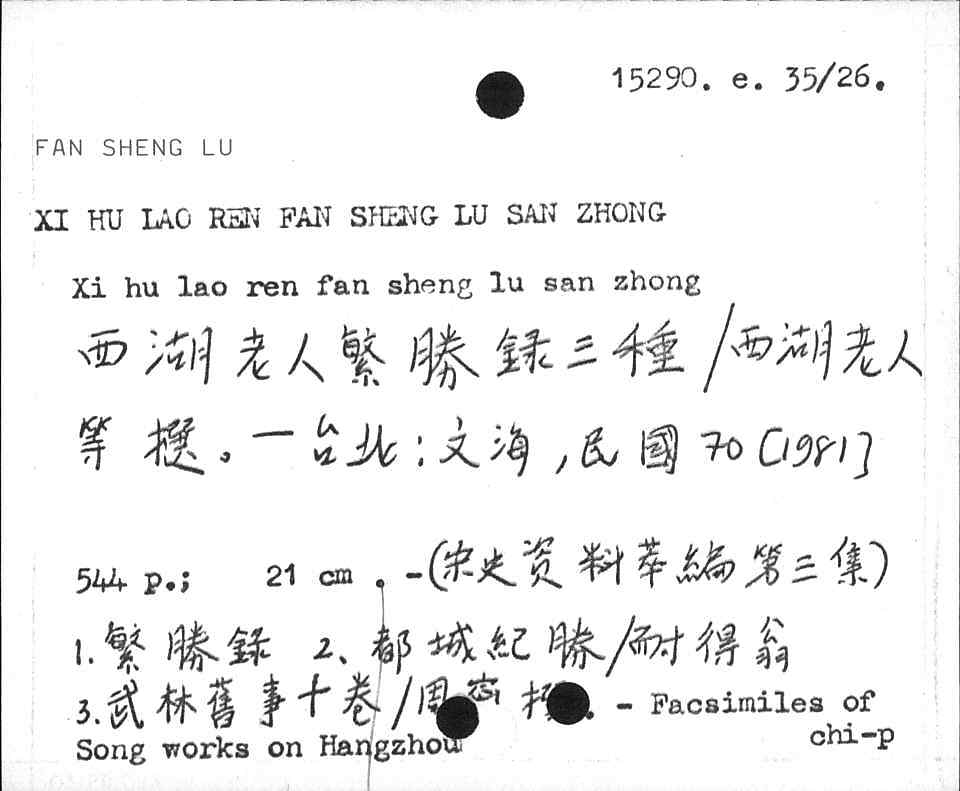 15290. e. 35/26.
FAN SHENG LU
XI HU LAO REN FAN SHENG LU SAN ZHONG
Xi hu lao ren fan sheng lu san zhong
西湖老人繁勝録三種/西湖老人
等撰。一台北:文海,民國70[1981]
544 p.; 21 cm . -(宋史资料萃編第三集)
1.繁勝錄 2、都城紀勝/耐得翁
3.武林舊事十卷/周密撰. - Facsimiles of
Song works on Hangzhou chi-p